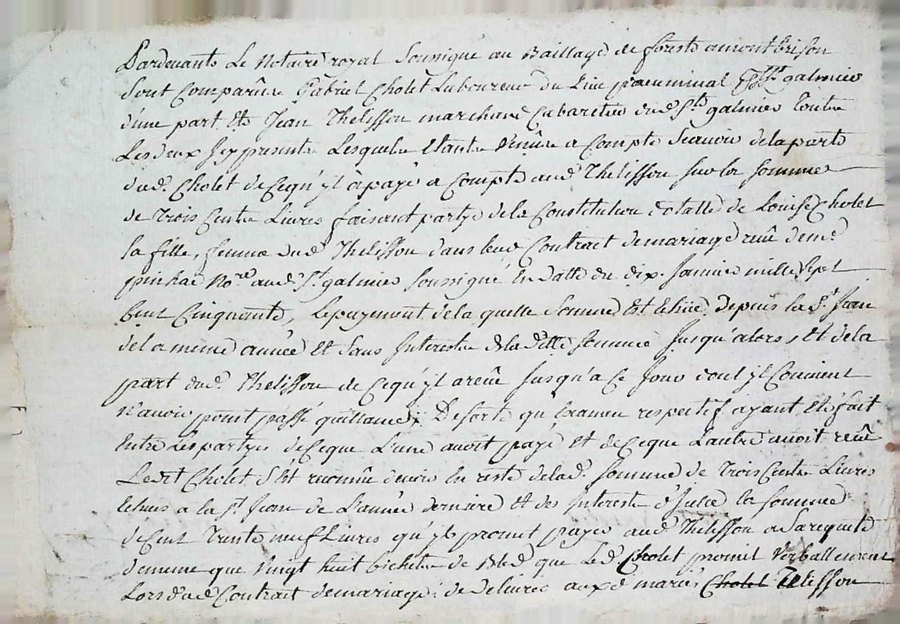 Pardevants Le Notaire royal Soussigné au Baillage de forests a montbrison
Sont Comparûs Gabriel Cholet Laboureur du Lieu St galmier
d'une part, Et Jean Thelisson marchand Cabaretier dud. St galmier
Les deux Icy presents Lesquels Etants Venûs a Compte Scavoir de la parts
dud. Cholet de Cequ'yl à payé a Compte aud. Thelisson sur la somme
de Trois Cents Livres faisant partye de la Constitution dotalle de Louise Cholet
sa fille, femme dud. Thelisson dans leur Contrat de mariage reçû de me.
pinhac Nore. aud. St. galmier soussigné En datte du dix Janvier mille sept
Cent Cinquante, Le payement de la quelle somme Est Echüe depuis la St. Jean
de la même année Et sans Interests de lad. somme Jusqu'alors, Et de la
part dud. Thelisson de Cequ'yl a reçû Jusqu'a Ce Jour dont yl Convient
n'avoir point passé quittance; De sorte qu'Examen respectif ayant Eté fait
Entre Les partyes de Ceque L'une avoit payé Et de Ceque L'autre avoit reçû
Ledt Cholet s'Est reconnû devoir En reste de lad. somme de Trois Cents Livres
Echus a la St. Jean de L'année derniere Et des Interests d'Icelle la somme
de Cent Trente neuf Livres qu'yl promet payer aud. Thelisson a sa requête
de meme que Vingt huit bichets de Bled que Led. Cholet promit Verballement
Lors dud. Contrat de mariage de delivrer auxd. mariés Cholet Telisson